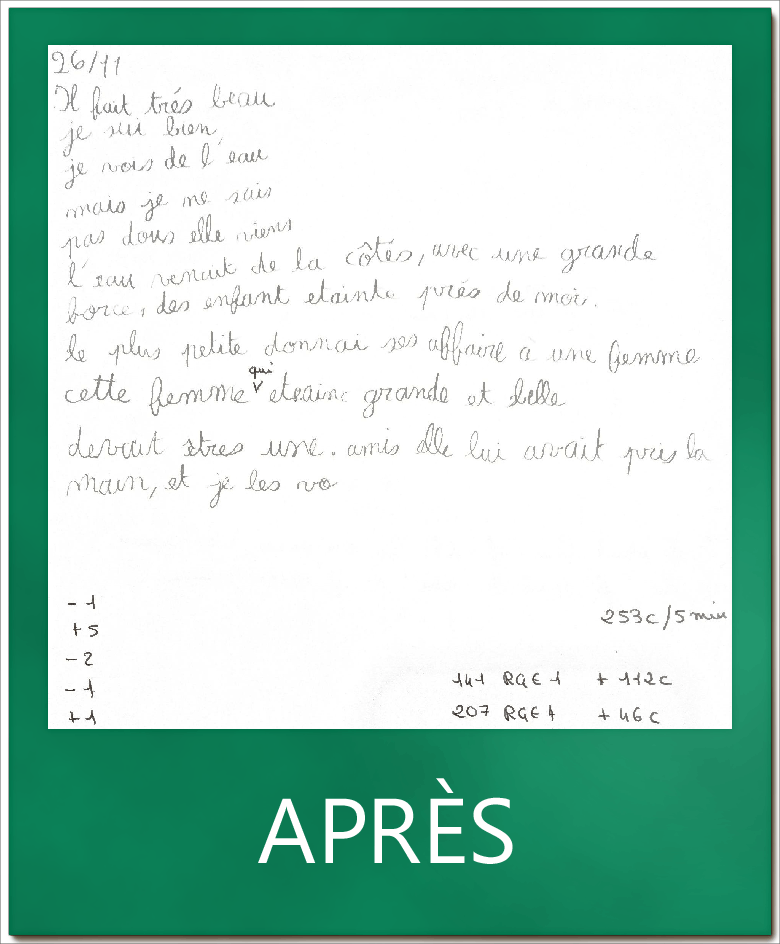 26/11
Il fait trés beau
je sui bien
je vois de l'eau
mais je me sais
pas dous elle viens
l'eau venait de la côtés, avec une grande
force, des enfant etainte prés de moi.
le plus petite donnai ses affaire a une femme
qui
cette femme v etainc grande et belle
devait etres une. amis elle lui avait pris la
main, et je les vo
- 1
+ 5
- 2
- 1
+ 1
253c/5 min
141 RGE 1 + 112c
207 RGE 4 + 46c
APRÈS